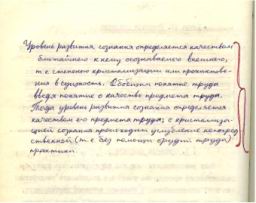 Уровень развития сознания определяется качеством
ближайшего к нему осознаваемого внешнего,
т.е. степенью кристаллизации или проникнове-
ния в сущность. Обобщим понятие труда
введя понятие о качестве предмета труда.
Тогда уровень развития сознания определяется
качеством его предмета труда; с кристаллиза-
цией сознания происходит углубление непосред-
ственной (т.е. без помощи орудий труда)
практики.